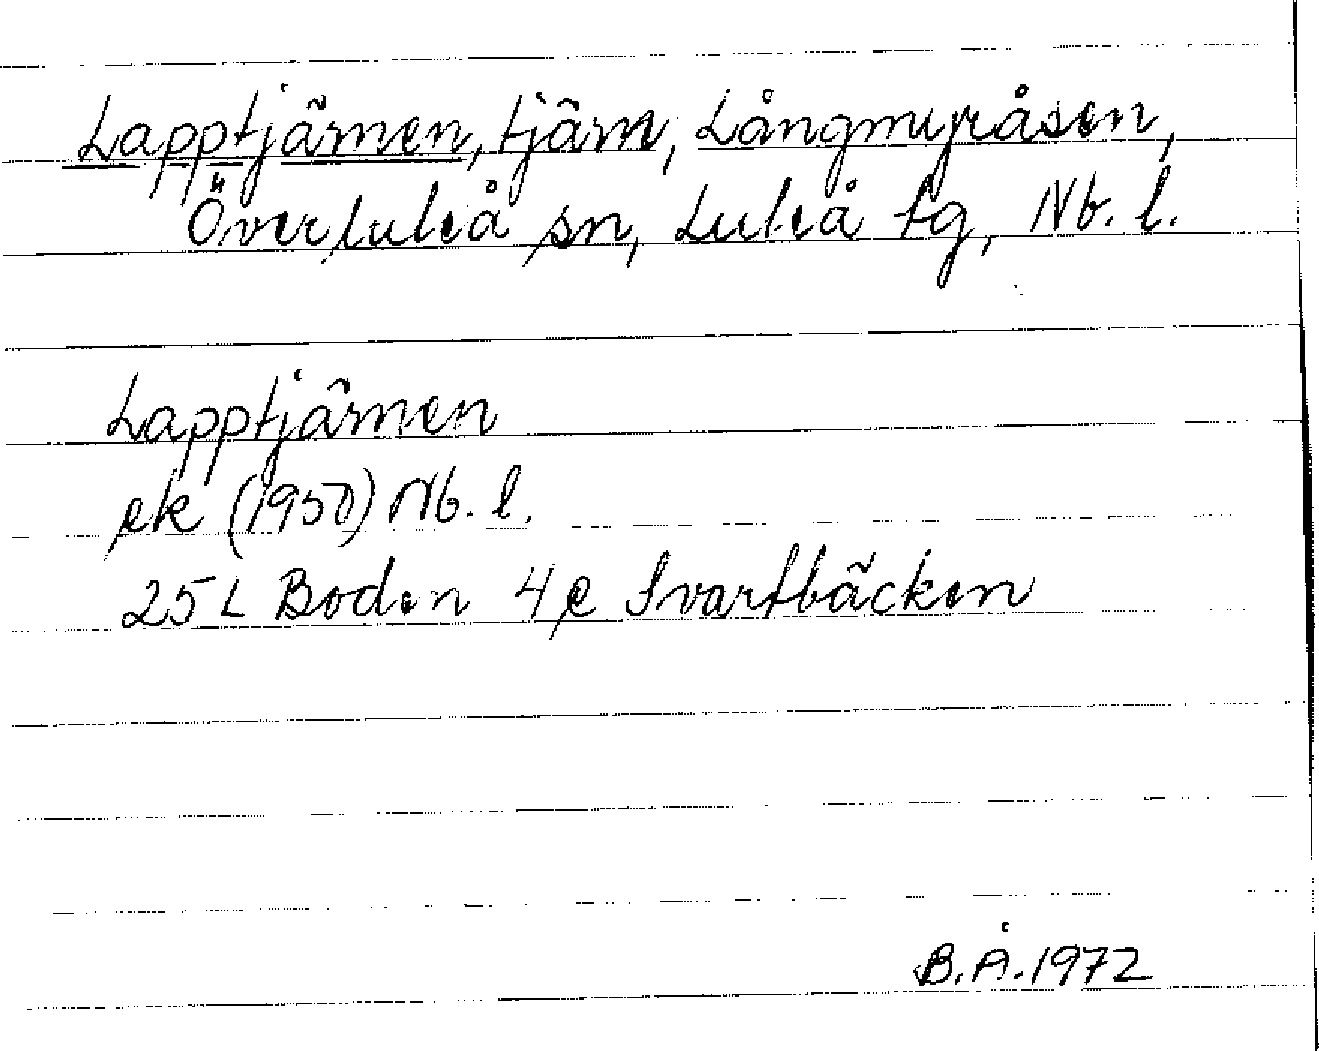 Lapptjärnen, tjärn, Långmyråsen,
Överluleå sn, Luleå tg, Nb. l.
Lapptjärnen
ek (1950) Nb. l.
25 L Boden 4 e Svartbäcken
B.Å. 1972